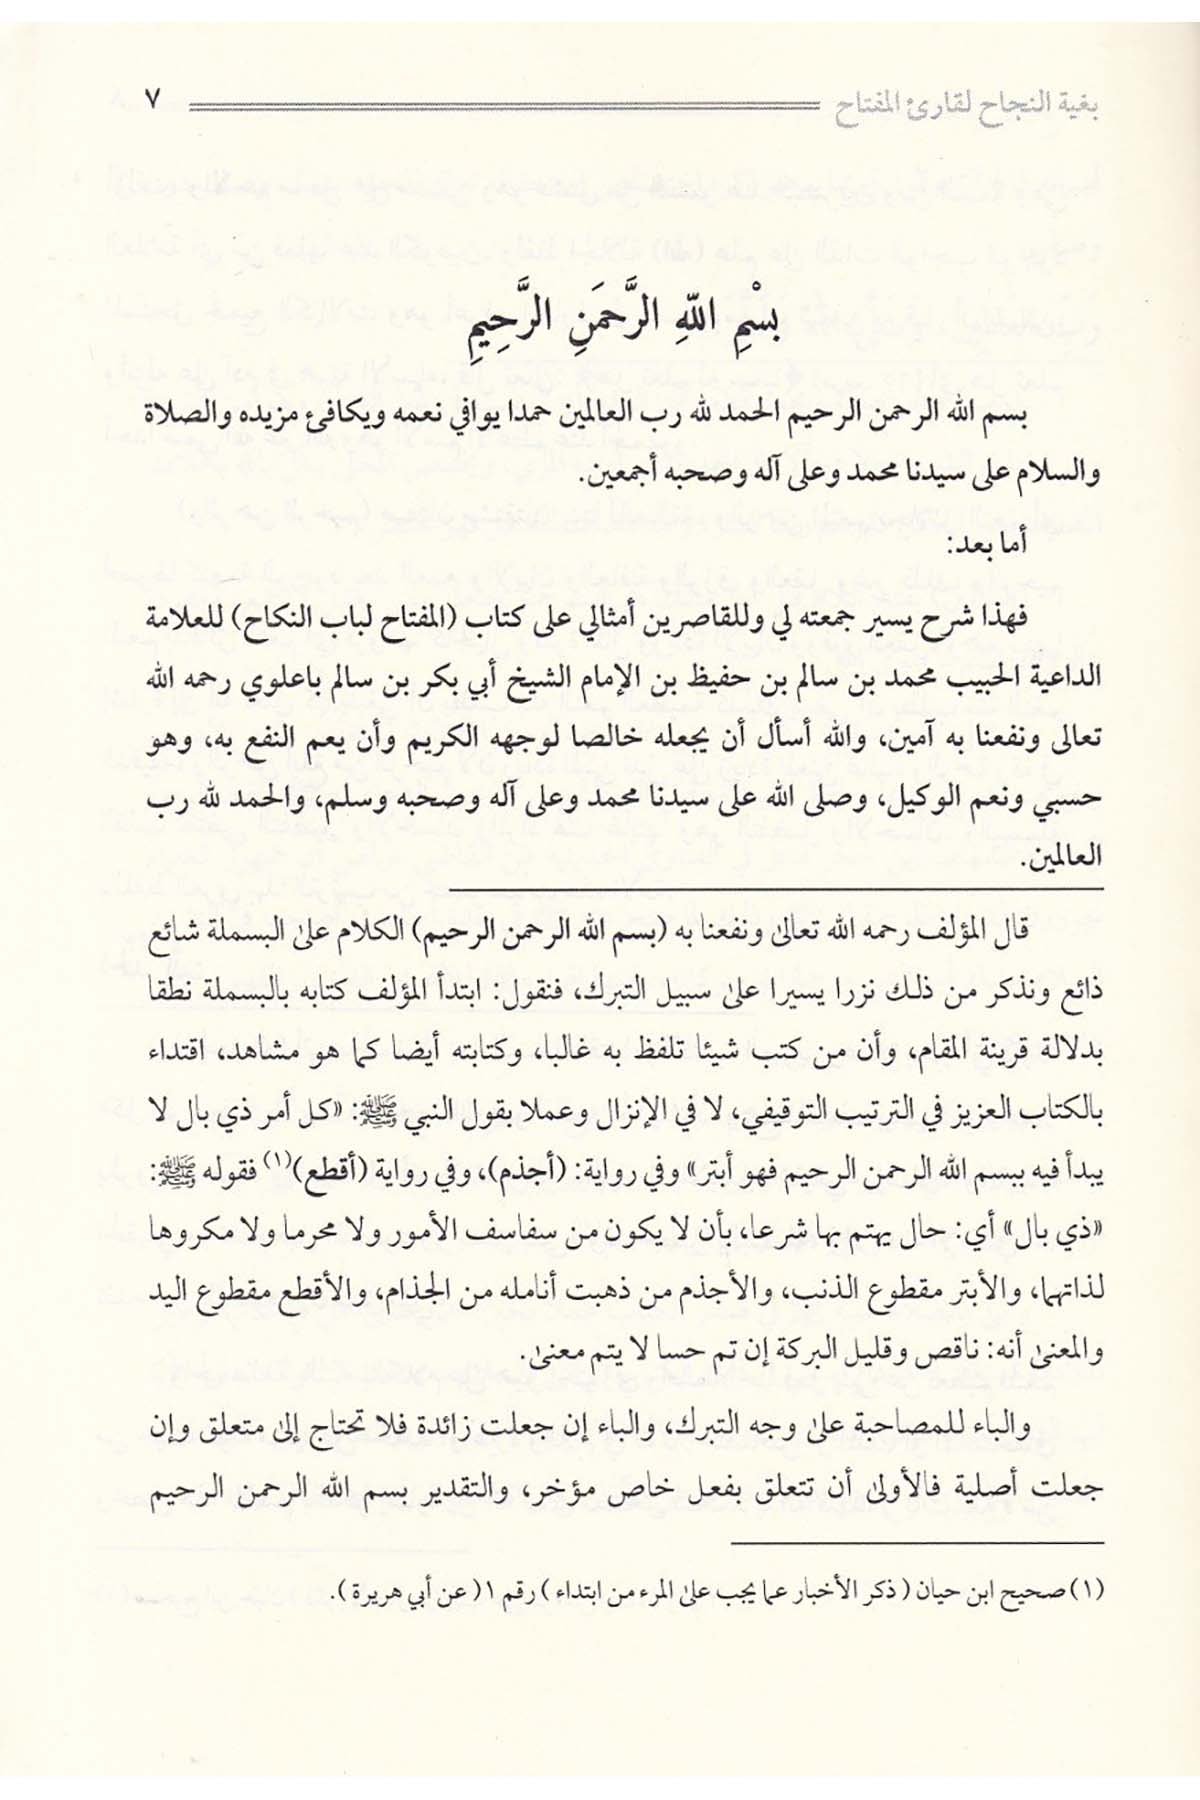 بغية النجاح لقارئ المفتاح ٧
بِسْمِ اللَّهِ الرَّحمَنِ الرَّحِيمِ
بسم الله الرحمن الرحيم الحمد لله رب العالمين حمدا يوافي نعمه ويكافئ مزيده والصلاة
والسلام على سيدنا محمد وعلى آله وصحبه أجمعين.
أما بعد:
فهذا شرح يسير جمعته لي وللقاصرين أمثالي على كتاب (المفتاح لباب النكاح) للعلامة
الداعية الحبيب محمد بن سالم بن حفيظ بن الإمام الشيخ أبي بكر بن سالم باعلوي رحمه الله
تعالى ونفعنا به آمين، والله أسأل أن يجعله خالصا لوجهه الكريم وأن يعم النفع به، وهو
حسبي ونعم الوكيل، وصلى الله على سيدنا محمد وعلى آله وصحبه وسلم، والحمد لله رب
العالمين.
قال المؤلف رحمه الله تعالىٰ ونفعنا به (بسم الله الرحمن الرحيم) الكلام علىٰ البسملة شائع
ذائع ونذكر من ذلك نزرا يسيرا علىٰ سبيل التبرك، فنقول: ابتدأ المؤلف كتابه بالبسملة نطقا
بدلالة قرينة المقام، وأن من كتب شيئا تلفظ به غالبا، وكتابته أيضا كما هو مشاهد، اقتداء
بالكتاب العزيز في الترتيب التوقيفي، لا في الإنزال وعملا بقول النبي ﷺ: «كل أمر ذي بال لا
يبدأ فيه ببسم الله الرحمن الرحيم فهو أبتر» وفي رواية: (أجذم)، وفي رواية (أقطع)(١) فقوله ﷺ:
«ذي بال» أي: حال يهتم بها شرعا، بأن لا يكون من سفاسف الأمور ولا محرما ولا مكروها
لذاتهما، والأبتر مقطوع الذنب، والأجذم من ذهبت أنامله من الجذام، والأقطع مقطوع اليد
والمعنىٰ أنه: ناقص وقليل البركة إن تم حسا لا يتم معنىٰ.
والباء للمصاحبة علىٰ وجه التبرك، والباء إن جعلت زائدة فلا تحتاج إلىٰ متعلق وإن
جعلت أصلية فالأولىٰ أن تتعلق بفعل خاص مؤخر، والتقدير بسم الله الرحمن الرحيم
(١) صحيح ابن حيان ( ذكر الأخبار عما يجب علىٰ المرء من ابتداء ) رقم ١ ( عن أبي هريرة ).